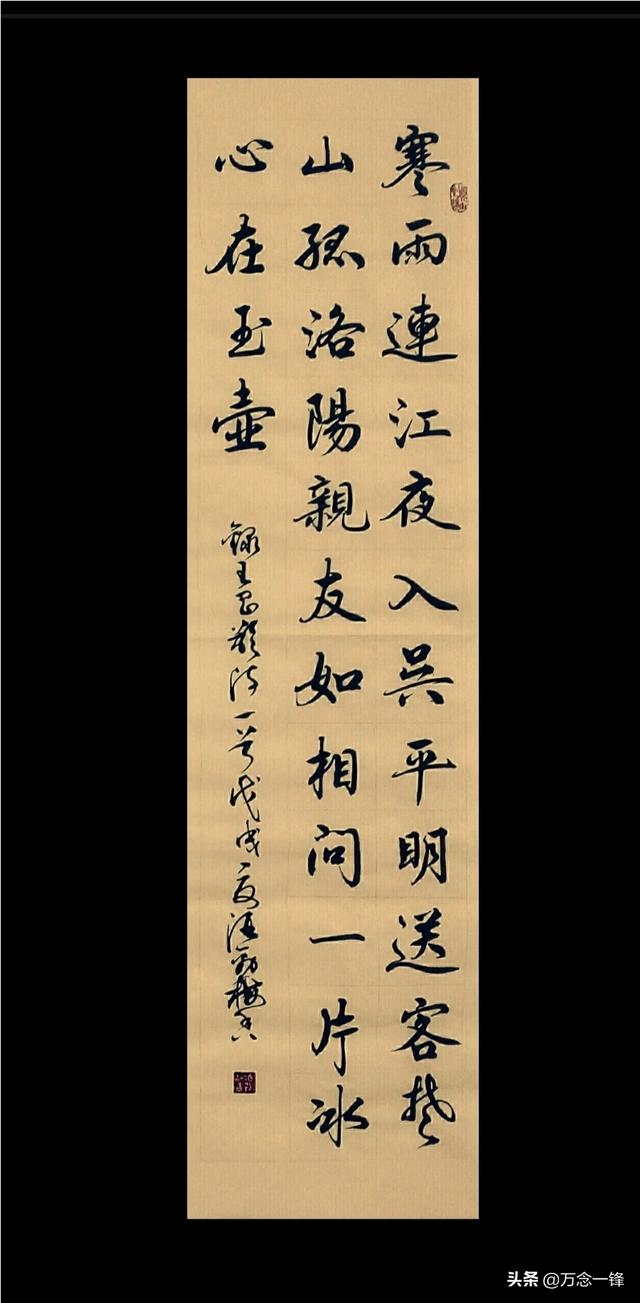 寒雨連江夜入吴平明送客楚
山孤洛陽親友如相问一片冰
心在玉壶
錄王昌龄诗一首戊戌夏汪
头条 @万念一锋